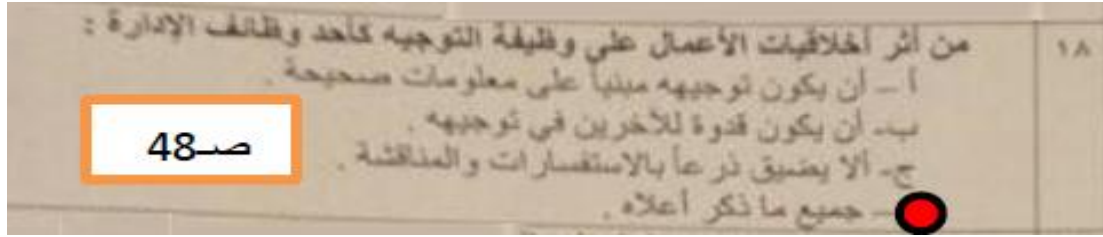 ١٨
من أثر أخلاقيات الأعمال على وظيفة التوجيه كأحد وظائف الإدارة :
أ – أن يكون توجيهه مبنياً على معلومات صحيحة .
ب- أن يكون قدوة للآخرين في توجيهه .
ج- ألا يضيق ذرعاً بالاستفسارات والمناقشة .
– جميع ما ذكر أعلاه .
صـ48